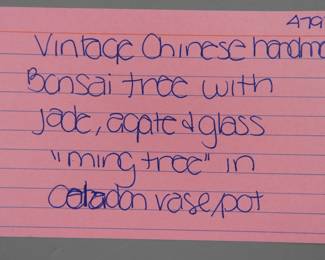 479
Vintage Chinese handm
Bonsai tree with
jade, agate & glass
"ming tree" in
Celadon vase/pot